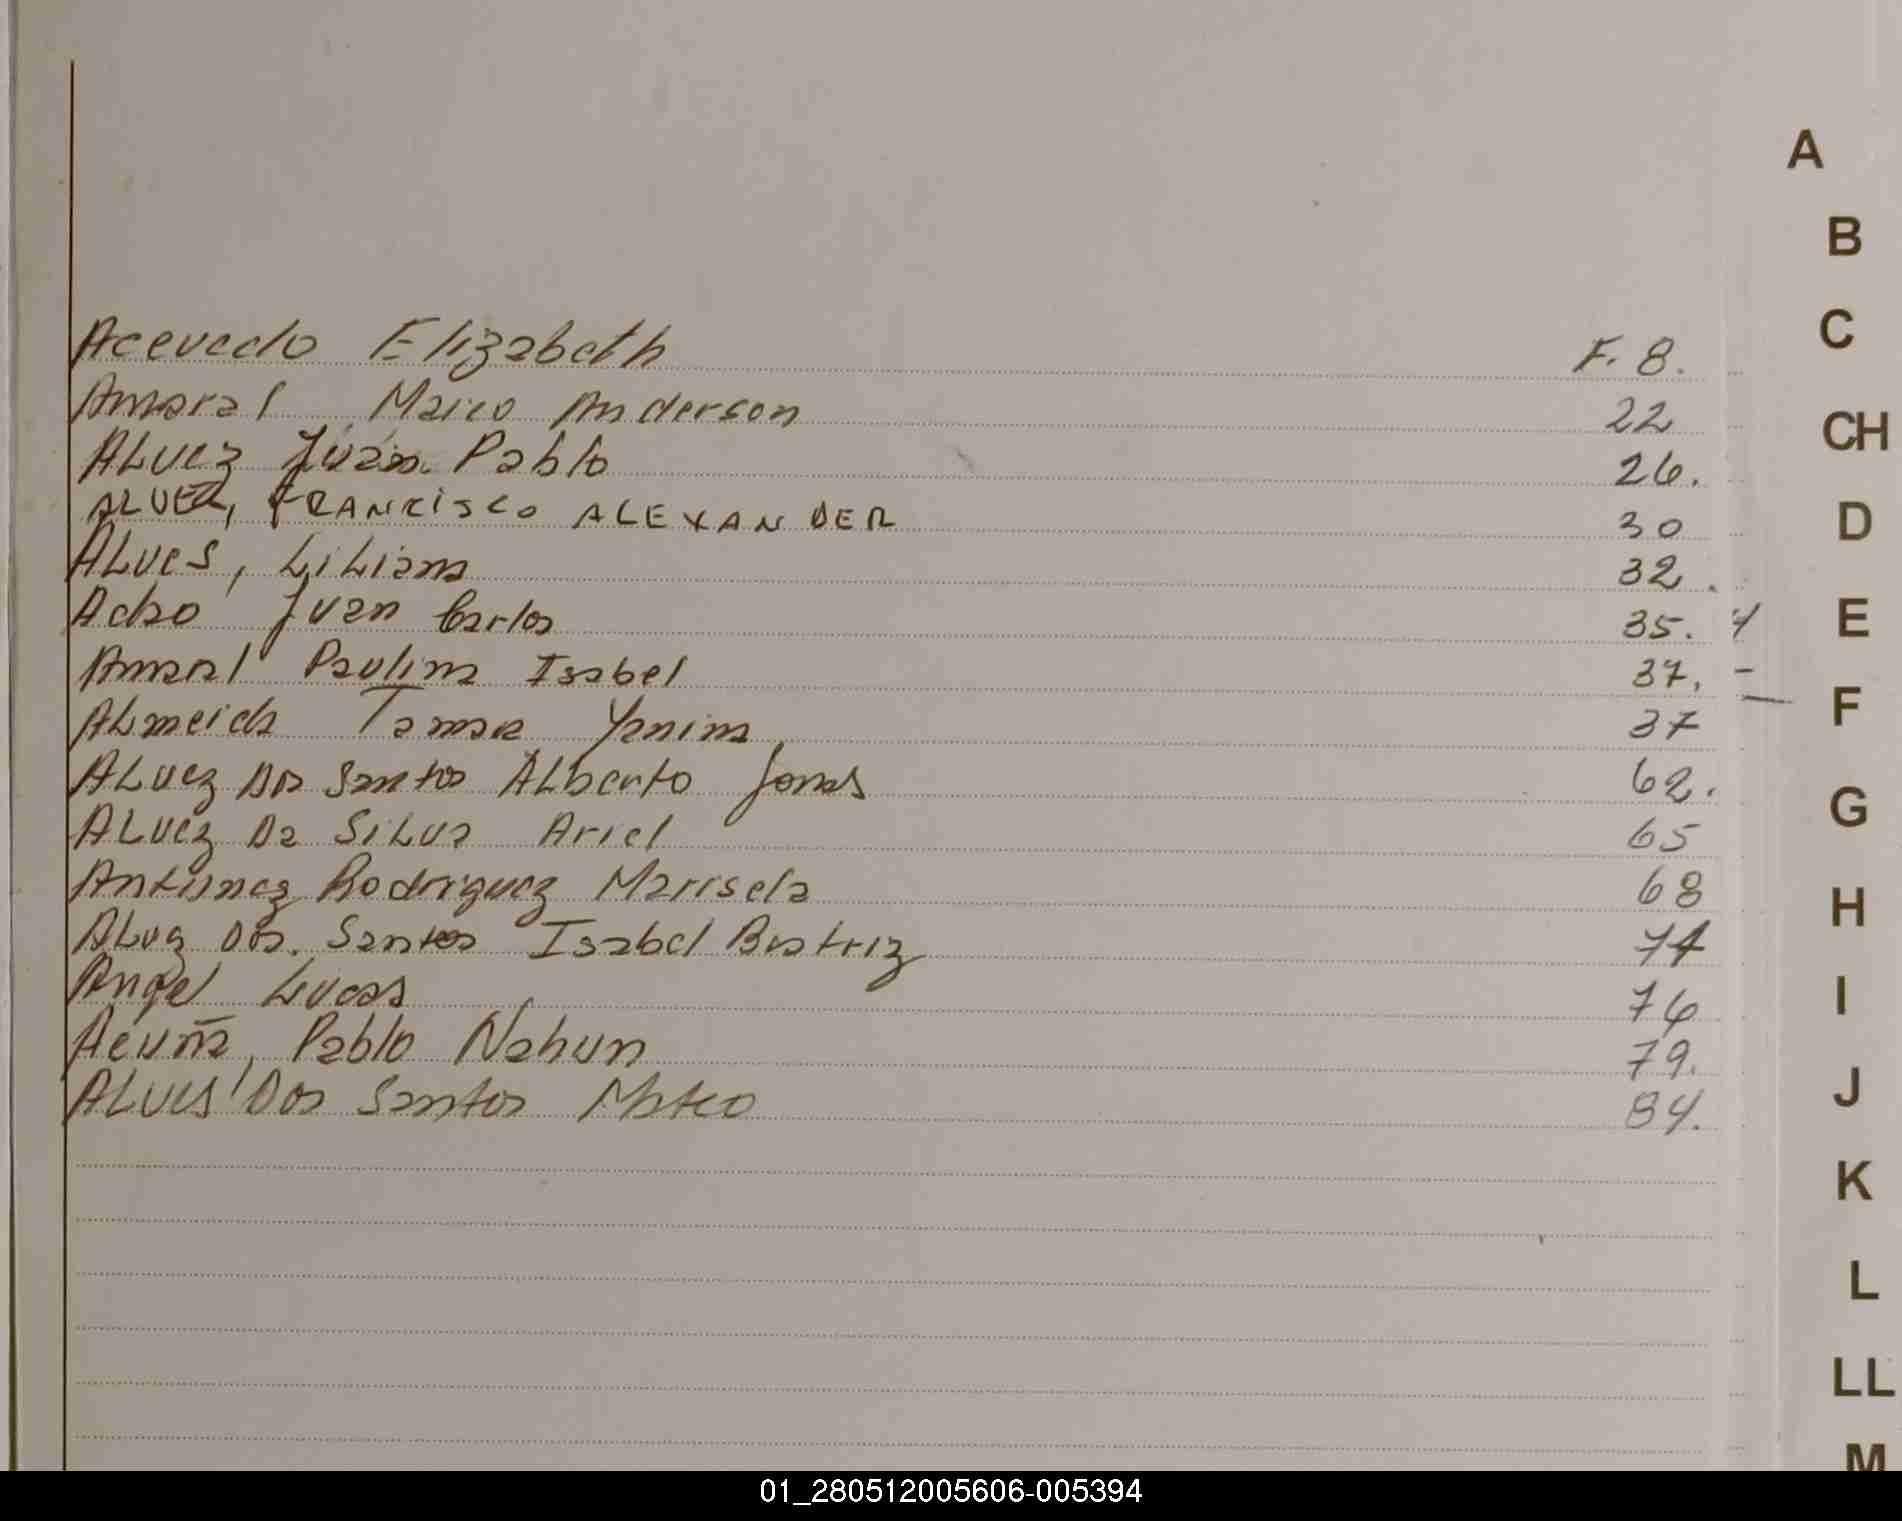 Acevedo Elizabeth F. 8.
Amaral Marco Anderson 22
ALvez Juan Pablo 26.
ALVEZ, FRANCISCO ALEXANDER 30
ALves, LiLiana 32.
Juan Carlos 35.
Amaral Paulina Isabel 37.
ALmeida Yanina 37
ALvez Dos Santos ALberto Jonas 62.
ALvez Da SiLva Ariel 65
Antunez Rodriguez Marisela 68
ALvez Dos Santos Isabel Beatriz 74
Angel Lucas 76
Acuña, Pablo Nahun 79.
ALves Dos Santos Mateo 84.
A
B
C
CH
D
E
F
G
H
I
J
K
L
LL
M
01_280512005606-005394